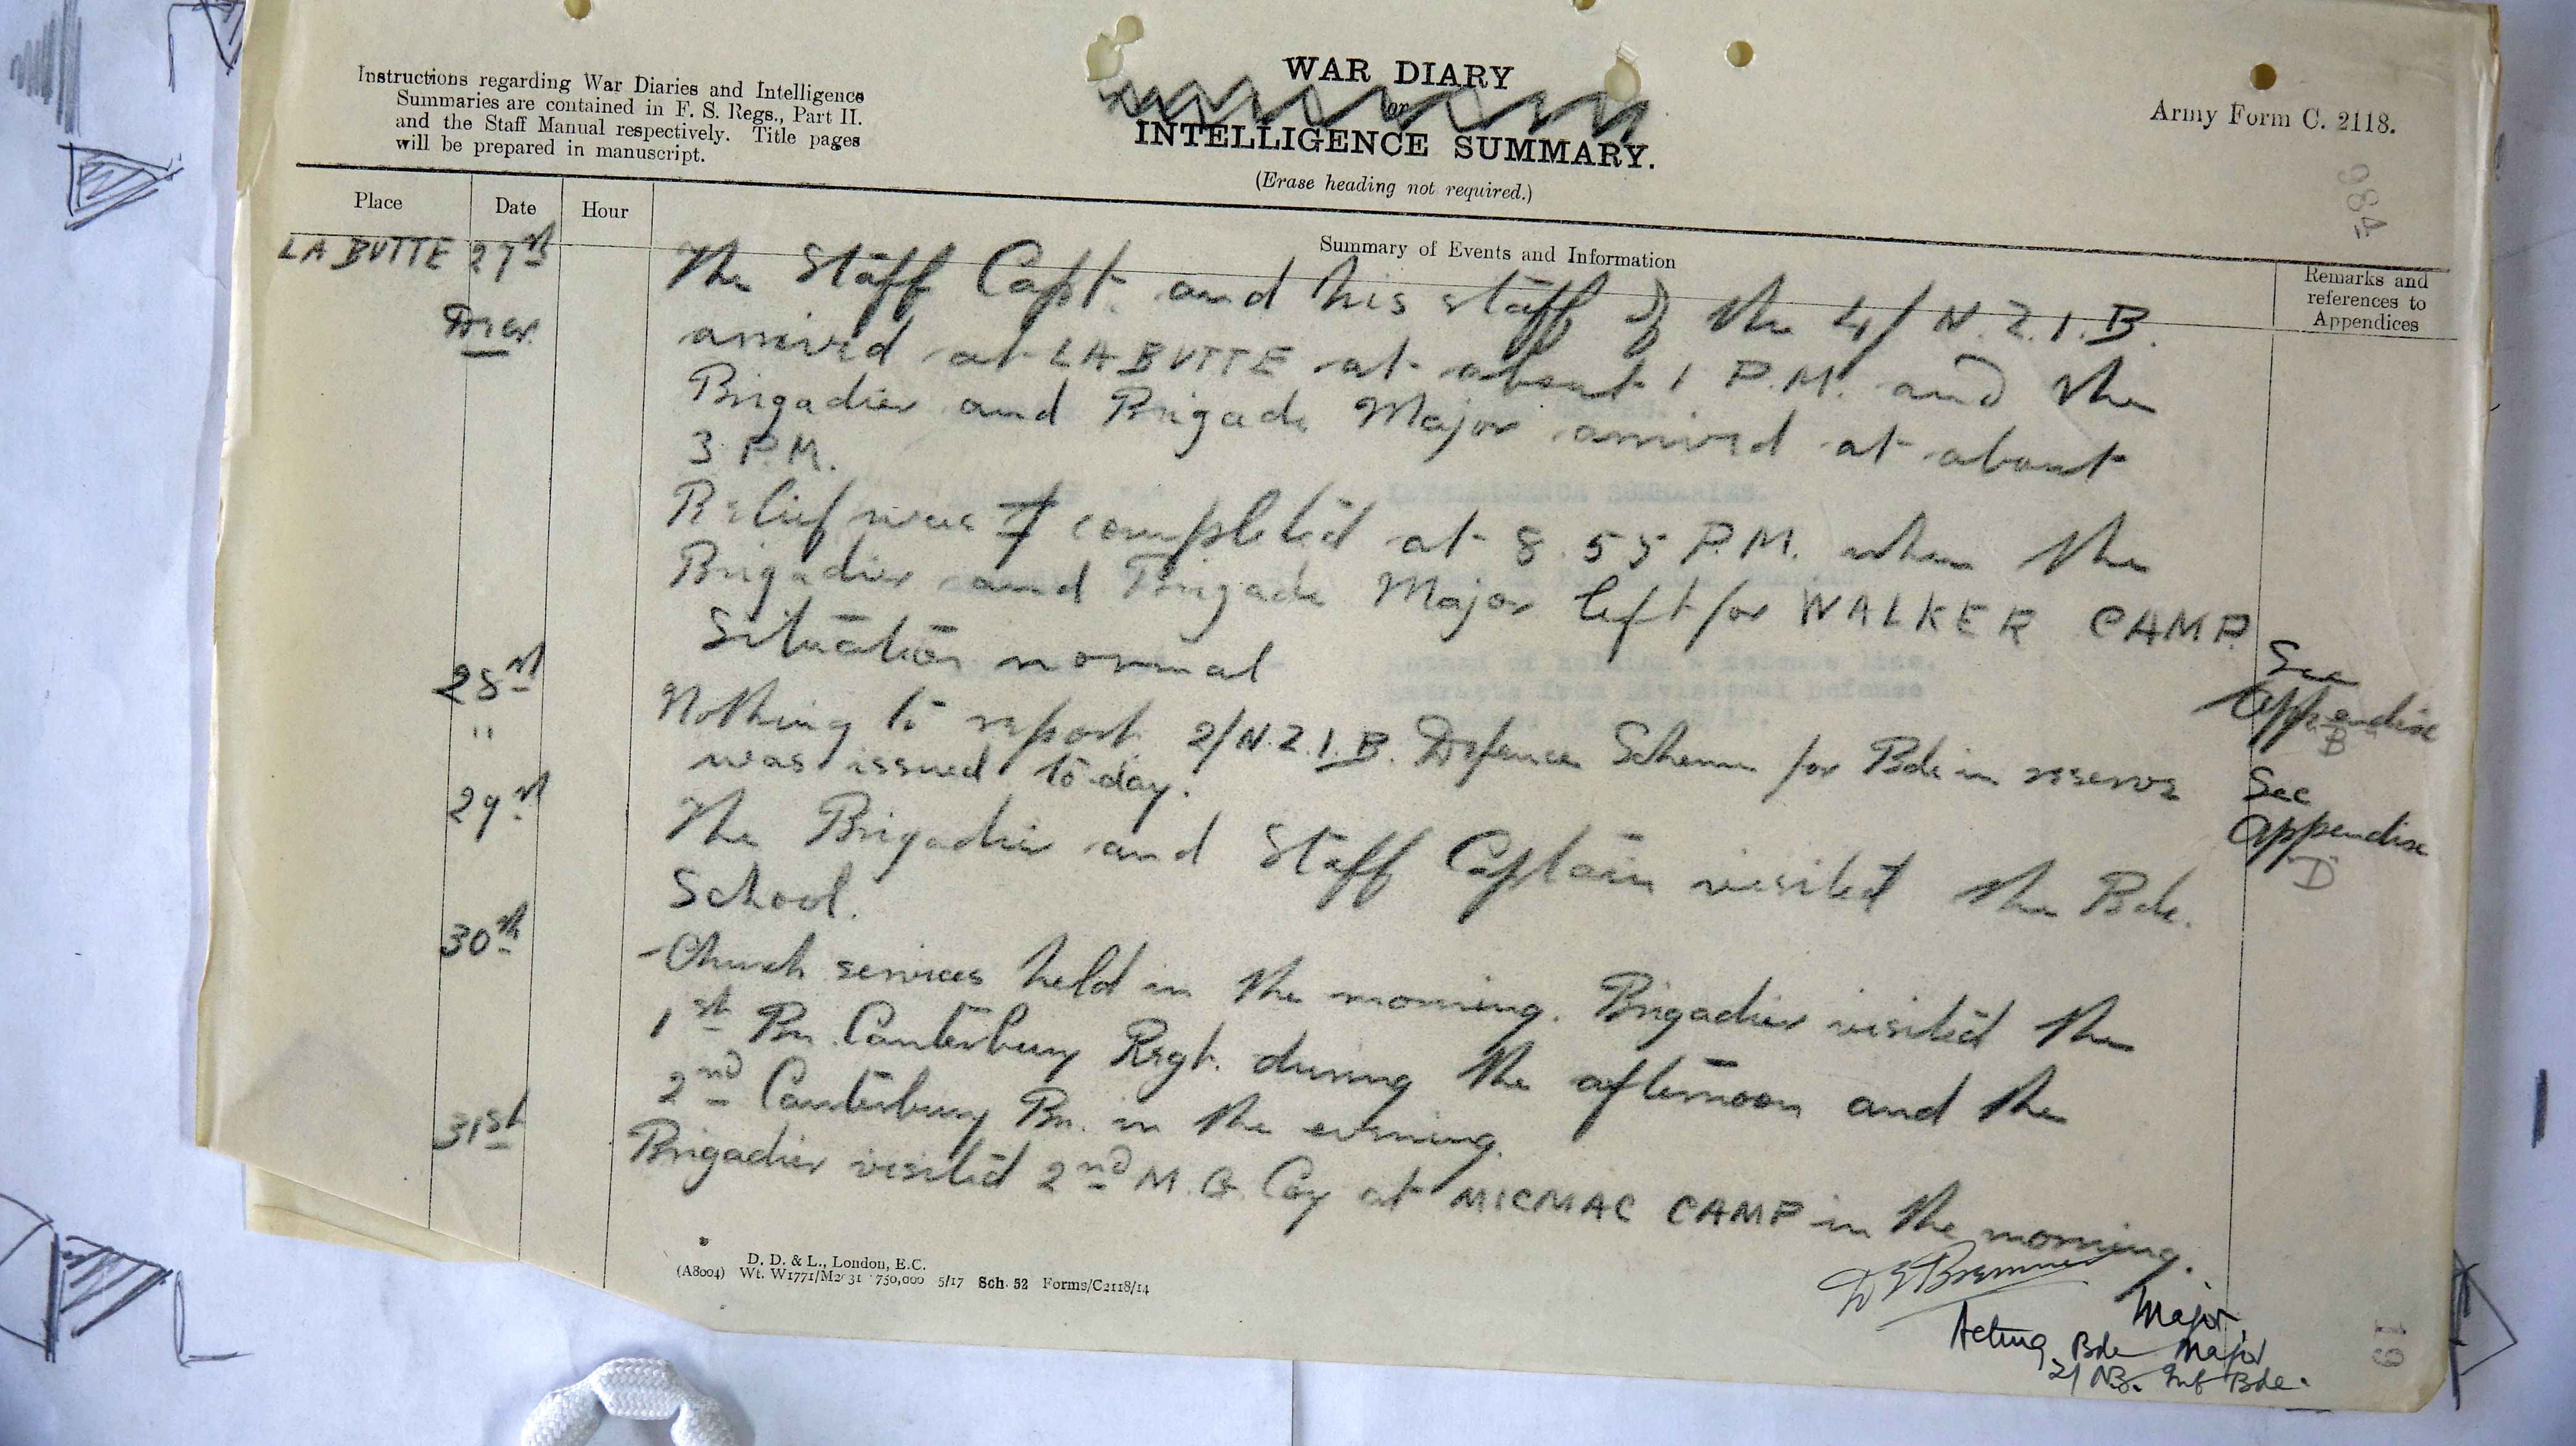 Instructions regarding War Diaries and Intelligence
Summaries are contained in F. S. Regs., Part II.
and the Staff Manual respectively. Title pages
will be prepared in manuscript.
WAR DIARY
or
INTELLIGENCE SUMMARY.
(Erase heading not required.)
Army Form C. 2118.
486
Place
Date
Hour
Summary of Events and Information
Remarks and
references to
Appendices
LA BUTTE 27st
Decr.
The Staff Capt. and his staff of the 4/N.Z.I.B.
arrived at LA BUTTE at about 1 P.M. and the
Brigadier and Brigade Major arrived at about
3 P.M.
Relief was completed at 8.55 P.M. when the
Brigadier and Brigade Major left for WALKER CAMP.
Situation normal
28st
"
Nothing to report. 2/N.Z.I.B. Defence Scheme for Bde in reserve
was issued to-day.
See
Appendix
B
29st
The Brigadier and Staff Captain visited the Bde.
School.
See
Appendix
"D"
30th
Church services held in the morning. Brigadier visited the
1st Bn. Canterbury Regt. during the afternoon and the
2nd Canterbury Bn. in the evening.
31st
Brigadier visited 2nd M.G. Coy at MICMAC CAMP in the morning.
D E Bremner
Major,
Acting Bde Major
2/NZ. Inf Bde.
D. D. & L., London, E.C.
(A8004) Wt. W1771/M2031 750,000 5/17 Sch. 52 Forms/C2118/14
61